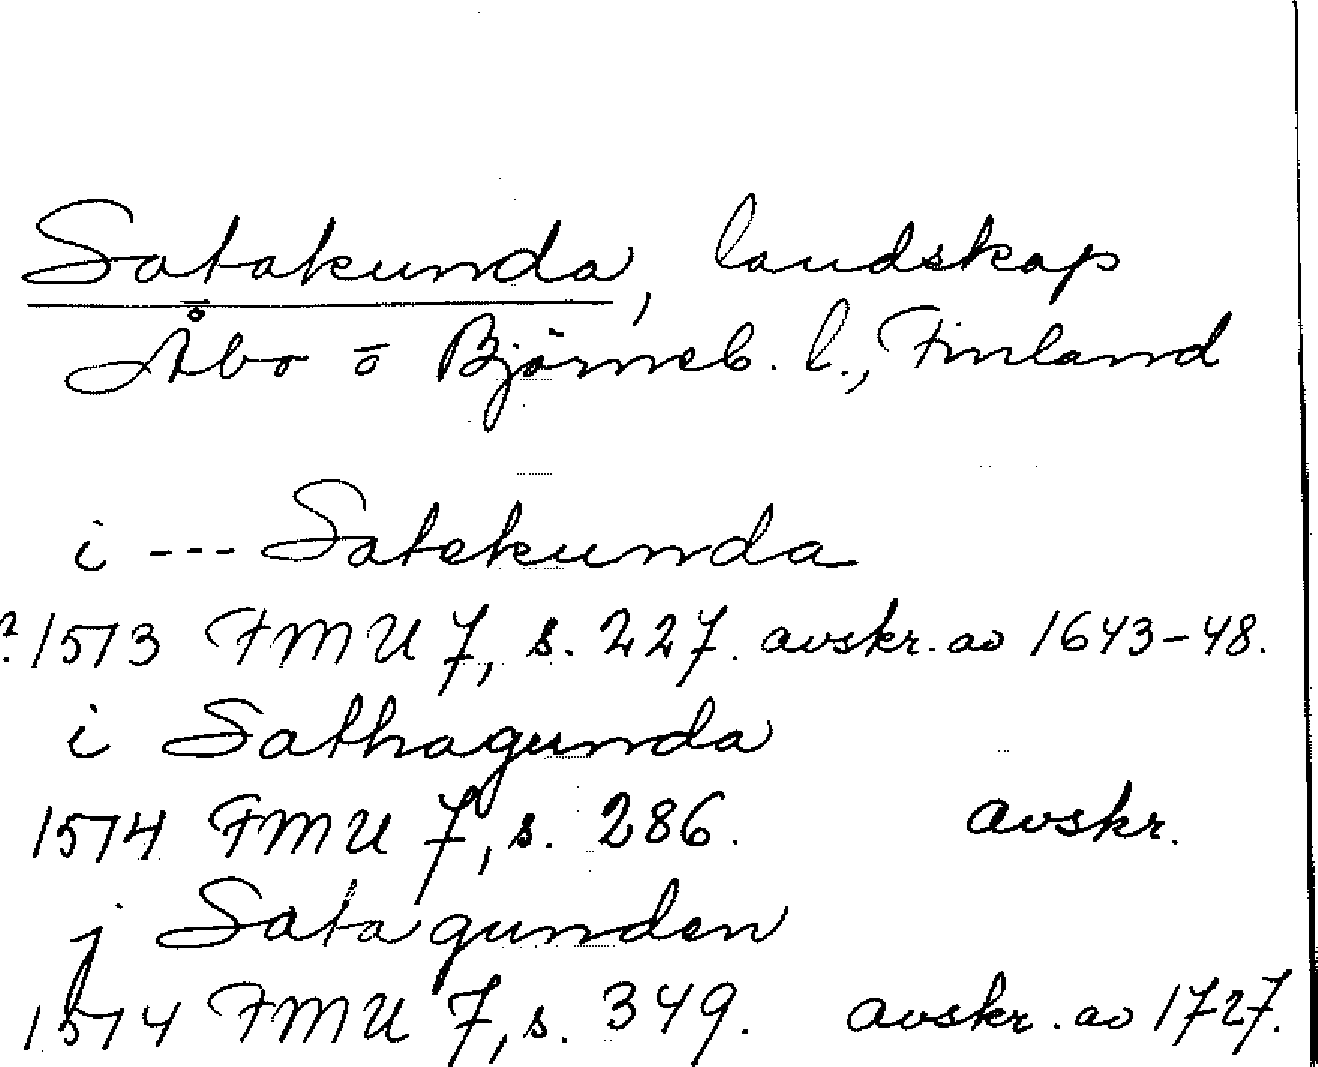 Satakunda, landskap
Åbo ō Björneb. l., Finland
i --- Satekunda
? 1513 FMU 7, s. 227. avskr. av 1643-48.
i Sathagunda
1514 FMU 7, s. 286. avskr.
j Satagunden
1514 FMU 7, s. 349. avskr. av 1727.